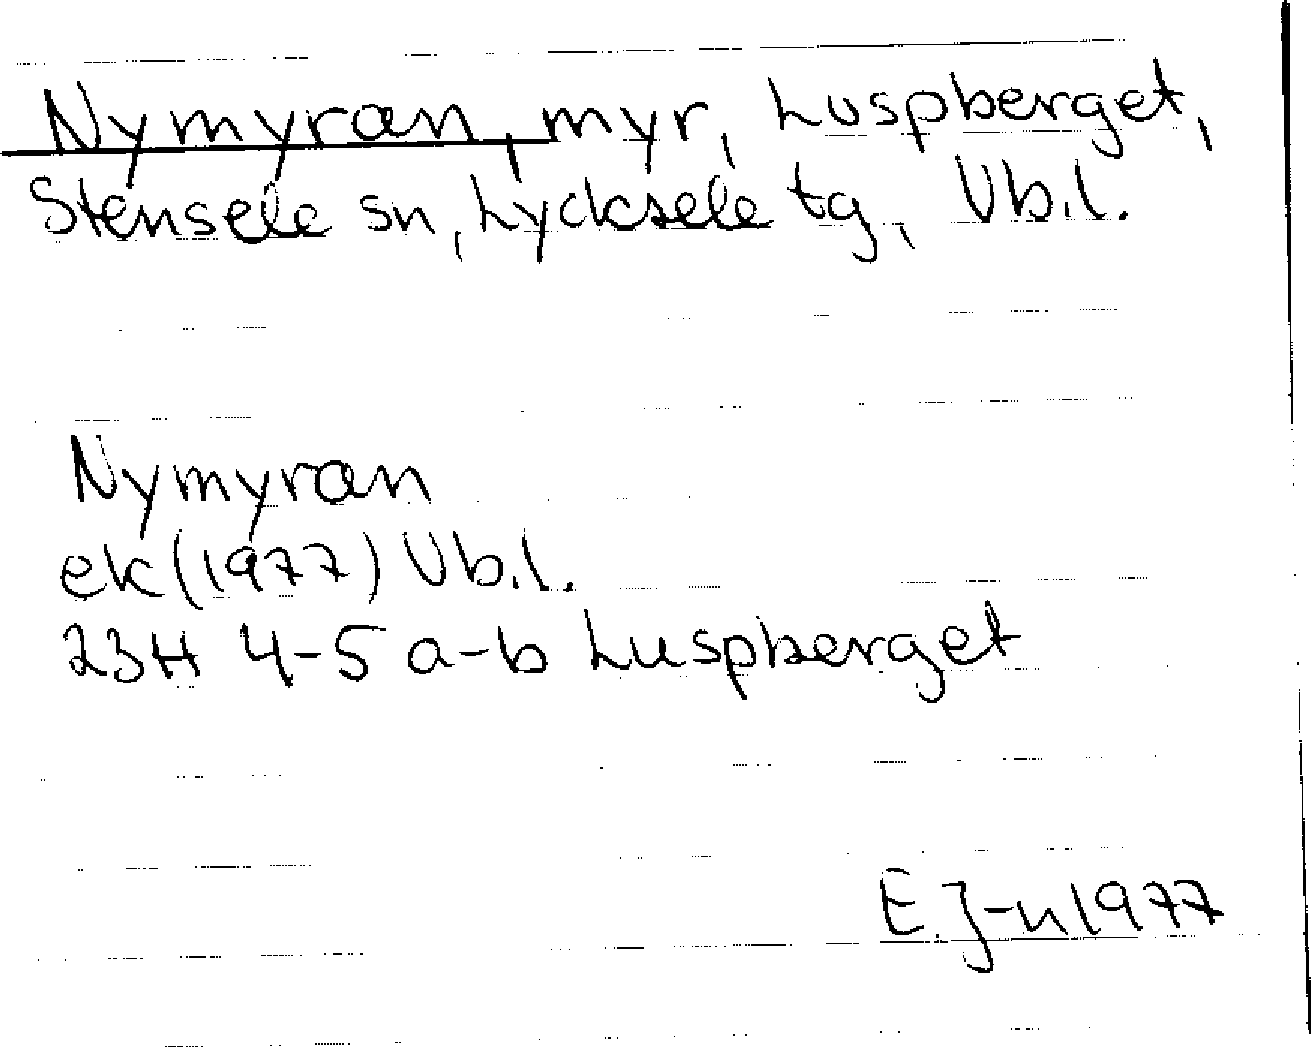 Nymyran, myr, Luspberget,
Stensele sn, Lycksele tg, Vb.l.
Nymyran
ek (1977) Vb.l.
23H 4-5 a-b Luspberget
E.J-n 1977